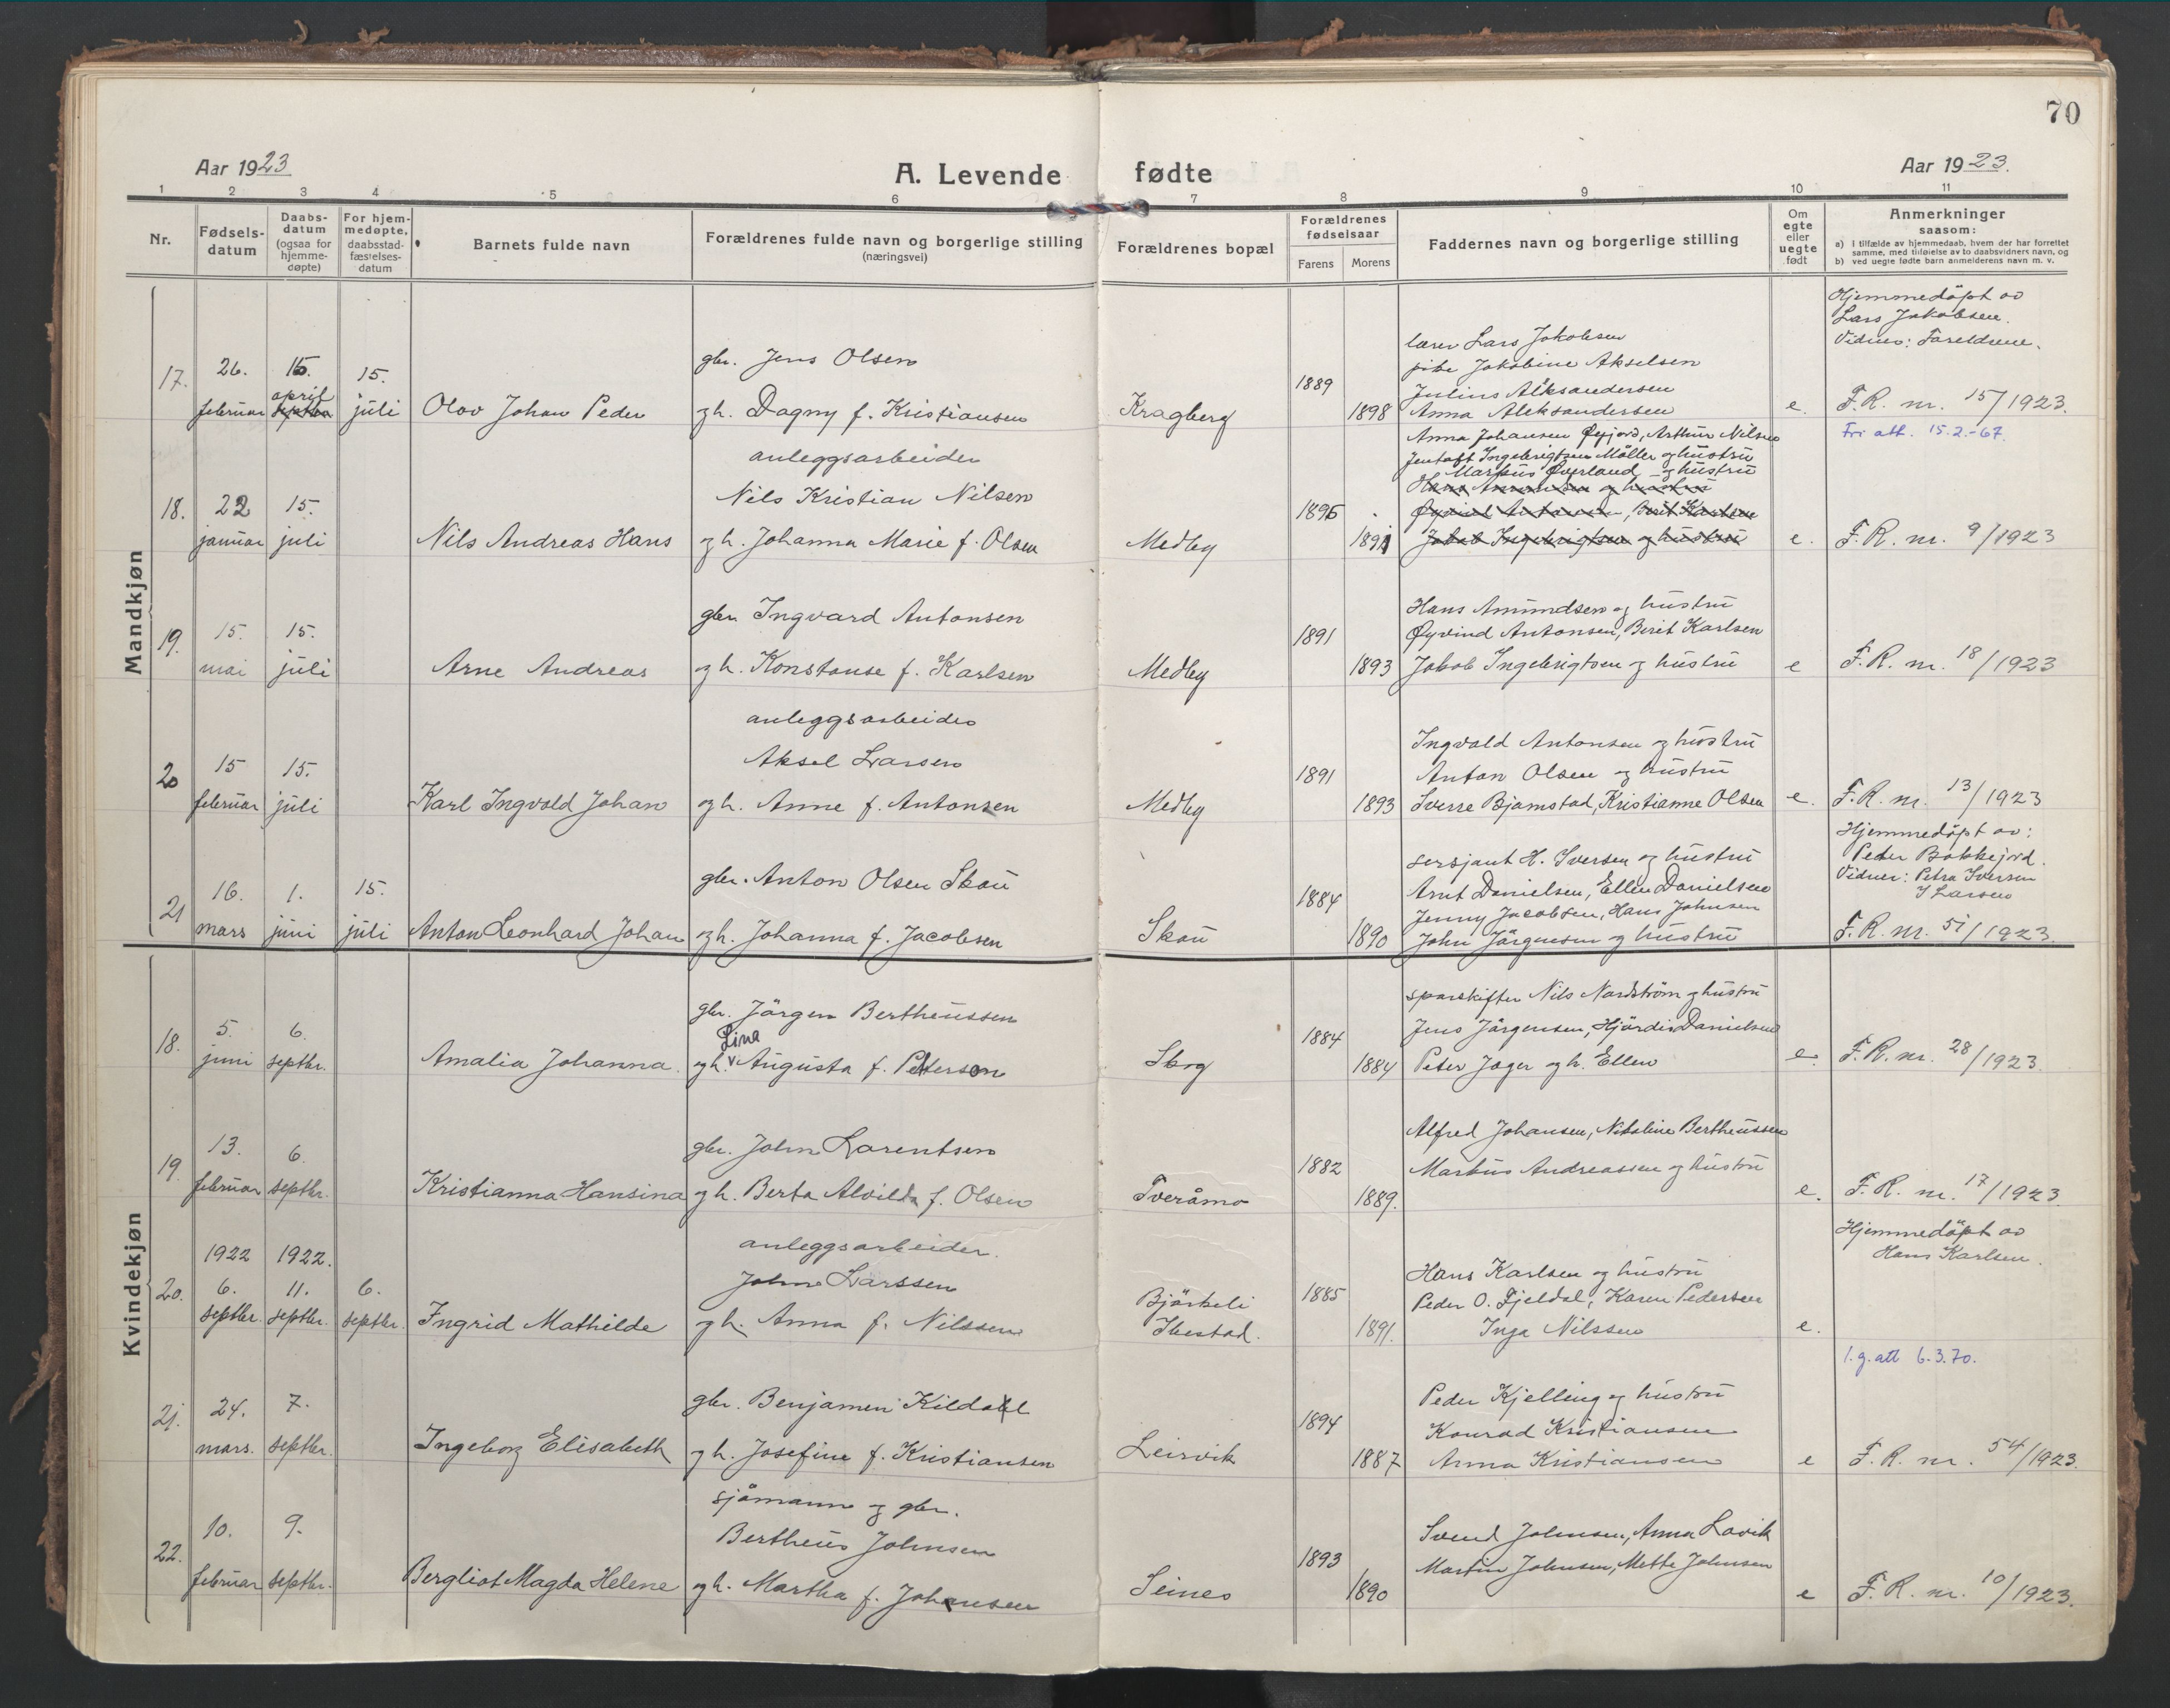 70
Aar 1923
A. Levende fødte
Aar 1923.
1 2 3 4 5 6 7 8 9 10 11
Nr.
Fødsels-
datum
Daabs-
datum
(ogsaa for
hjemme-
døpte)
For hjem-
medøpte,
daabsstad-
fæstelses-
datum
Barnets fulde navn
Forældrenes fulde navn og borgerlige stilling
(næringsvei)
Forældrenes bopæl
Forældrenes
fødselsaar
Farens Morens
Faddernes navn og borgerlige stilling
Om
egte
eller
uegte
født
Anmerkninger
saasom:
a) I tilfælde av hjemmedaab, hvem der har forrettet
samme, med tilføielse av to daabsvidners navn, og
b) ved uegte fødte barn anmelderens navn m. v.
Mandkjøn
17.
26.
februar
15.
april
15.
juli
Olov Johan Peder
gbr. Jens Olsen
og h. Dagny f. Kristiansen
Kragberg
1889
1898
lærer Lars Jakobsen
pike Jakobine Akselsen
Julius Aleksandersen
Anna Aleksandersen
e.
Hjemmedöpt av
Lars Jakobsen.
Vidner: Foreldrene.
F.R. nr. 15/1923.
Fri att. 15.2.-67.
18.
22
januar
15.
juli
Nils Andreas Hans
anleggsarbeider
Nils Kristian Nilsen
og h. Johanna Marie f. Olsen
Medby
1895
1891
Anna Johansen Øyjord, Arthur Nilsen
Jentoft Ingebrigtsen Möller og hustru
Markus Øverland og hustru
Hans Amundsen og hustru
Øyvind Antonsen, Berit Karlsen
Jakob Ingebrigtsen og hustru
e.
F.R. nr. 9/1923
19.
15.
mai
15.
juli
Arne Andreas
gbr. Ingvard Antonsen
og h. Konstanse f. Karlsen
Medby
1891
1893
Hans Amundsen og hustru
Øyvind Antonsen, Berit Karlsen
Jakob Ingebrigtsen og hustru
e
F.R. nr. 18/1923
20
15
februar
15.
juli
Karl Ingvold Johan
anleggsarbeider
Aksel Larsen
og h. Anne f. Antonsen
Medby
1891
1893
Ingvald Antonsen og hustru
Anton Olsen og hustru
Sverre Bjamstad, Kristianne Olsen
e.
F.R. nr. 13/1923
21
16.
mars
1.
juni
15.
juli
Anton Leonhard Johan
gbr. Anton Olsen Skou
og h. Johanna f. Jacobsen
Skou
1884
1890
sersjant H. Iversen og hustru
Arnt Danielsen, Ellen Danielsen
Jenny Jacobsen, Hans Johnsen
John Jörgensen og hustru
Hjemmedöpt av:
Peder Bakkejord.
Vidner: Petra Iversen
I Larsen
F.R. nr. 51/1923.
Kvindekjøn
18.
5.
juni
6.
septbr.
Amalia Johanna.
gbr. Jörgen Bertheussen
Lina
og h. v Augusta f. Petterson
Skog
1884
1884
sporskifter Nils Nordström og hustru
Jens Jörgensen, Hjördis Danielsen
Peter Jager og h. Ellen
e.
F.R. nr. 28/1923.
19.
13.
februar
6.
septbr.
Kristianna Hansina
gbr. John Larentsen
og h. Berta Alvilda f. Olsen
Tveråmo
1882
1889.
Alfred Johansen, Nikoline Bertheussen
Markus Andreassen og hustru
e.
F.R. nr. 17/1923.
20.
1922
6.
septbr.
1922.
11.
septbr.
6.
septbr.
Ingrid Mathilde
anleggsarbeider.
John Larssen
og h. Anna f. Nilssen
Bjørkeli
Ibestad.
1885
1891.
Hans Karlsen og hustru
Peder O. Fjeldal, Karen Pedersen
Inga Nilssen
e.
Hjemmedöpt av
Hans Karlsen.
1.g. att 6.3.70.
21.
24.
mars.
7.
septbr.
Ingeborg Elisabeth
gbr. Benjamin Kildal
og h. Josefine f. Kristiansen
Leirvik
1894
1887
Peder Kjelling og hustru
Konrad Kristiansen
Anna Kristiansen
e
F.R. nr. 54/1923.
22.
10.
februar
9.
septbr.
Bergliot Magda Helene
sjömann og gbr.
Bertheus Johnsen
og h. Martha f. Johansen
Seines
1893
1890
Svend Johnsen, Anna Lavik
Martin Johnsen, Mette Johnsen
e
F.R. nr. 10/1923.